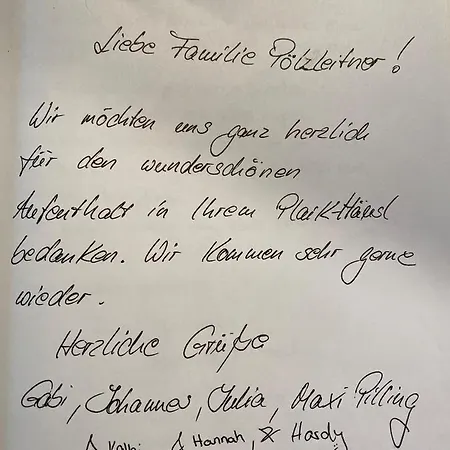 Liebe Familie Pölzleitner!
Wir möchten uns ganz herzlich
für den wunderschönen
Aufenthalt in Ihrem Plaik-Häusl
bedanken. Wir kommen sehr gerne
wieder.
Herzliche Grüße
Gabi, Johannes, Julia, Maxi Pilling
& Hannah, & Hardy